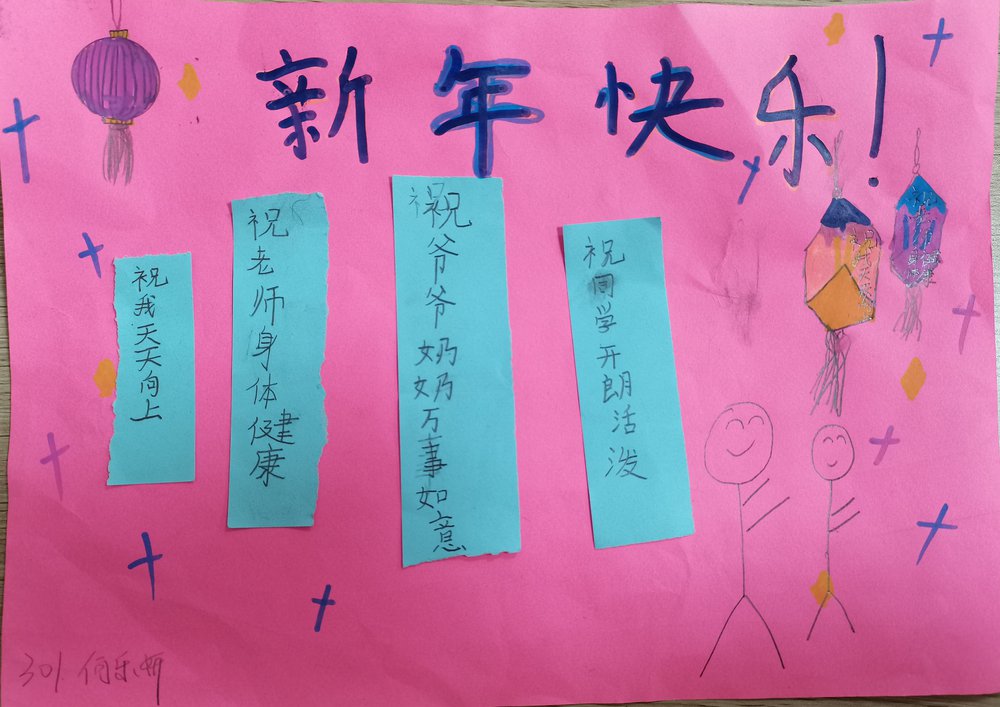 新年快乐!
祝我天天向上
祝老师身体健康
祝爷爷奶奶万事如意
祝同学开朗活泼
301